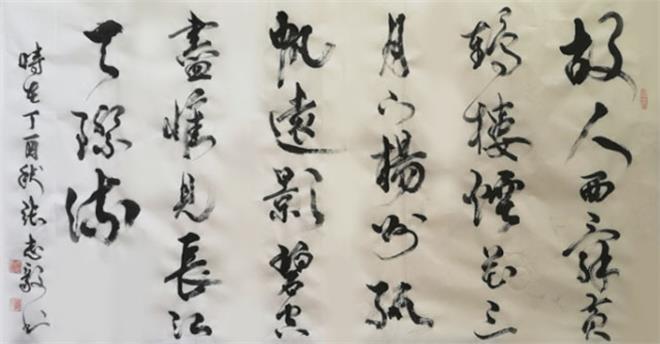 故人西辭黃
鶴樓煙花三
月下揚州孤
帆遠影碧空
盡惟見長江
天際流
時在丁酉秋張志毅書